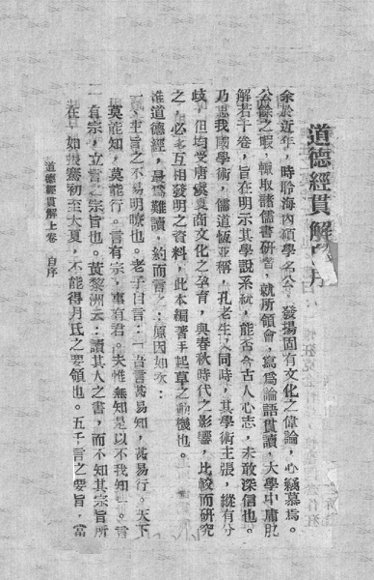 道德經貫解自序
余於近年，時聆海內碩學名公，發揚固有文化之偉論，心竊慕焉。
公餘之暇，輒取諸儒書研省，就所領會，寫為論語貫讀，大學中庸貫
解若干卷，旨在明示其學說系統，能否合古人心志，未敢深信也。
乃思我國學術，儒道恆並稱，孔老生又同時，其學術主張，縱有分
歧，但均受唐虞夏商文化之孕育，與春秋時代之影響，比較而研究
之，必多互相發明之資料，此本編著手起草之動機也。
惟道德經，最為難讀，約而言之，原因如次：
一、主旨之不易明瞭也。老子自言：「吾言甚易知，甚易行。天下
莫能知，莫能行。言有宗，事有君。夫惟無知是以不我知」。言
有宗，立言之宗旨也。黃黎洲云：讀其人之書，而不知其宗旨所
在，如張騫初至大夏，不能得月氏之要領也。五千言之要旨，當
道德經貫解上卷 自序
一